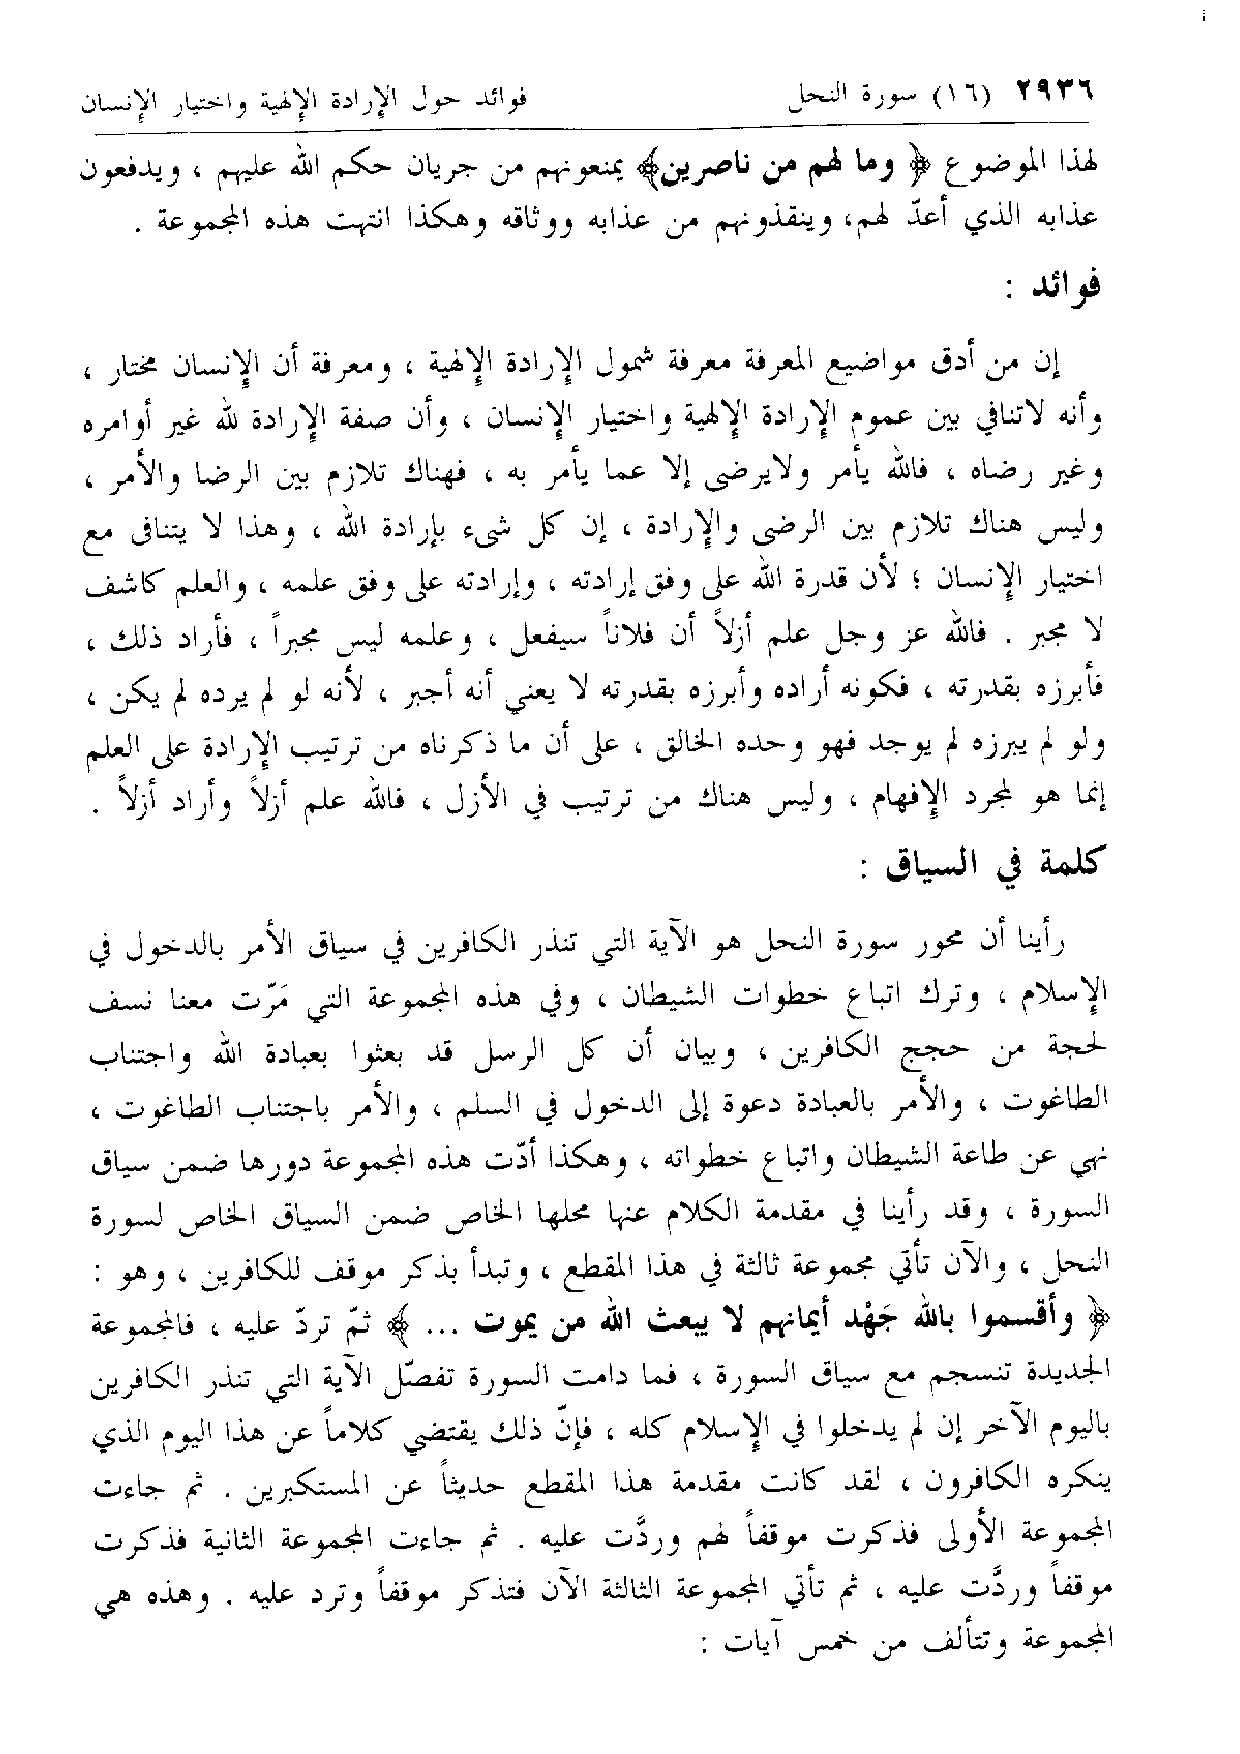 ٢٩٣٦ (١٦) سورة النحل فوائد حول الإرادة الإلهية واختيار الإنسان
لهذا الموضوع ﴿ وما لهم من ناصرين﴾ يمنعونهم من جريان حكم الله عليهم ، ويدفعون
عذابه الذي أعدّ لهم، وينقذونهم من عذابه ووثاقه وهكذا انتهت هذه المجموعة .
فوائد :
إن من أدق مواضيع المعرفة معرفة شمول الإرادة الإلهية ، ومعرفة أن الإنسان مختار ،
وأنه لاتنافي بين عموم الإرادة الإلهية واختيار الإنسان ، وأن صفة الإرادة لله غير أوامره
وغير رضاه ، فالله يأمر ولايرضى إلا عما يأمر به ، فهناك تلازم بين الرضا والأمر ،
وليس هناك تلازم بين الرضى والإرادة ، إن كل شىء بإرادة الله ، وهذا لا يتنافى مع
اختيار الإنسان ؛ لأن قدرة الله على وفق إرادته ، وإرادته على وفق علمه ، والعلم كاشف
لا مجبر . فالله عز وجل علم أزلاً أن فلاناً سيفعل ، وعلمه ليس مجبراً ، فأراد ذلك ،
فأبرزه بقدرته ، فكونه أراده وأبرزه بقدرته لا يعني أنه أجبر ، لأنه لو لم يرده لم يكن ،
ولو لم يبرزه لم يوجد فهو وحده الخالق ، على أن ما ذكرناه من ترتيب الإرادة على العلم
إنما هو لمجرد الإفهام ، وليس هناك من ترتيب في الأزل ، فالله علم أزلاً وأراد أزلاً .
كلمة في السياق :
رأينا أن محور سورة النحل هو الآية التي تنذر الكافرين في سياق الأمر بالدخول في
الإسلام ، وترك اتباع خطوات الشيطان ، وفي هذه المجموعة التي مَرّت معنا نسف
لحجة من حجج الكافرين ، وبيان أن كل الرسل قد بعثوا بعبادة الله واجتناب
الطاغوت ، والأمر بالعبادة دعوة إلى الدخول في السلم ، والأمر باجتناب الطاغوت ،
نهي عن طاعة الشيطان واتباع خطواته ، وهكذا أدّت هذه المجموعة دورها ضمن سياق
السورة ، وقد رأينا في مقدمة الكلام عنها محلها الخاص ضمن السياق الخاص لسورة
النحل ، والآن تأتي مجموعة ثالثة في هذا المقطع ، وتبدأ بذكر موقف للكافرين ، وهو :
﴿ وأقسموا بالله جَهْد أيمانهم لا يبعث الله من يموت ... ﴾ ثمّ تردّ عليه ، فالمجموعة
الجديدة تنسجم مع سياق السورة ، فما دامت السورة تفصّل الآية التي تنذر الكافرين
باليوم الآخر إن لم يدخلوا في الإسلام كله ، فإنّ ذلك يقتضي كلاماً عن هذا اليوم الذي
ينكره الكافرون ، لقد كانت مقدمة هذا المقطع حديثاً عن المستكبرين . ثم جاءت
المجموعة الأولى فذكرت موقفاً لهم وردّت عليه . ثم جاءت المجموعة الثانية فذكرت
موقفاً وردّت عليه ، ثم تأتي المجموعة الثالثة الآن فتذكر موقفاً وترد عليه . وهذه هي
المجموعة وتتألف من خمس آيات :